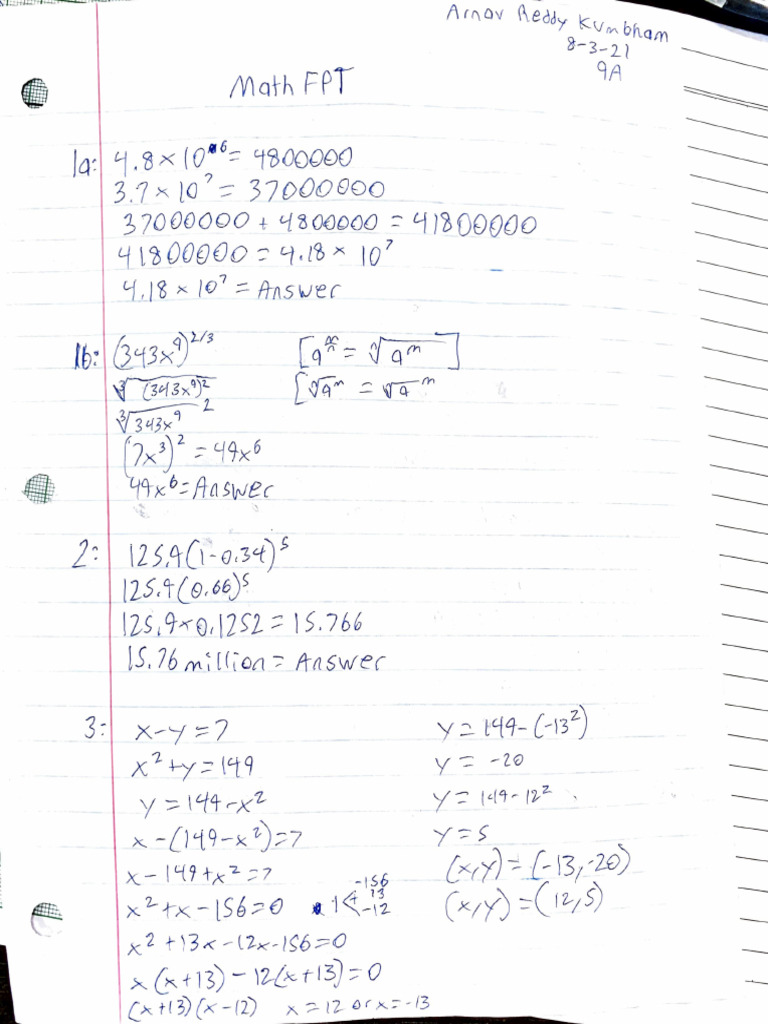 Arnav Reddy Kumbham
8-3-21
9A
Math FPT
1a: 4.8 × 10^6 = 4800000
3.7 × 10^7 = 37000000
37000000 + 4800000 = 41800000
41800000 = 4.18 × 10^7
4.18 × 10^7 = Answer
1b: (343x^9)^2/3
∛(343x^9)^2
∛343x^9 ^2
(7x^3)^2 = 49x^6
49x^6 = Answer
[a^m/n = ⁿ√a^m]
[ⁿ√a^m = ⁿ√a ^m
2: 125.9(1-0.34)^5
125.9(0.66)^5
125.9×0.1252 = 15.766
15.76 million = Answer
3: x-y=7
x^2+y=149
y=149-x^2
x-(149-x^2)=7
x-149+x^2=7
x^2+x-156=0 1< -156 + 13 -12
x^2+13x-12x-156=0
x(x+13)-12(x+13)=0
(x+13)(x-12) x=12 or x=-13
y=149-(-13^2)
y= -20
y=149-12^2
y=5
(x,y)=(-13,-20)
(x,y)=(12,5)